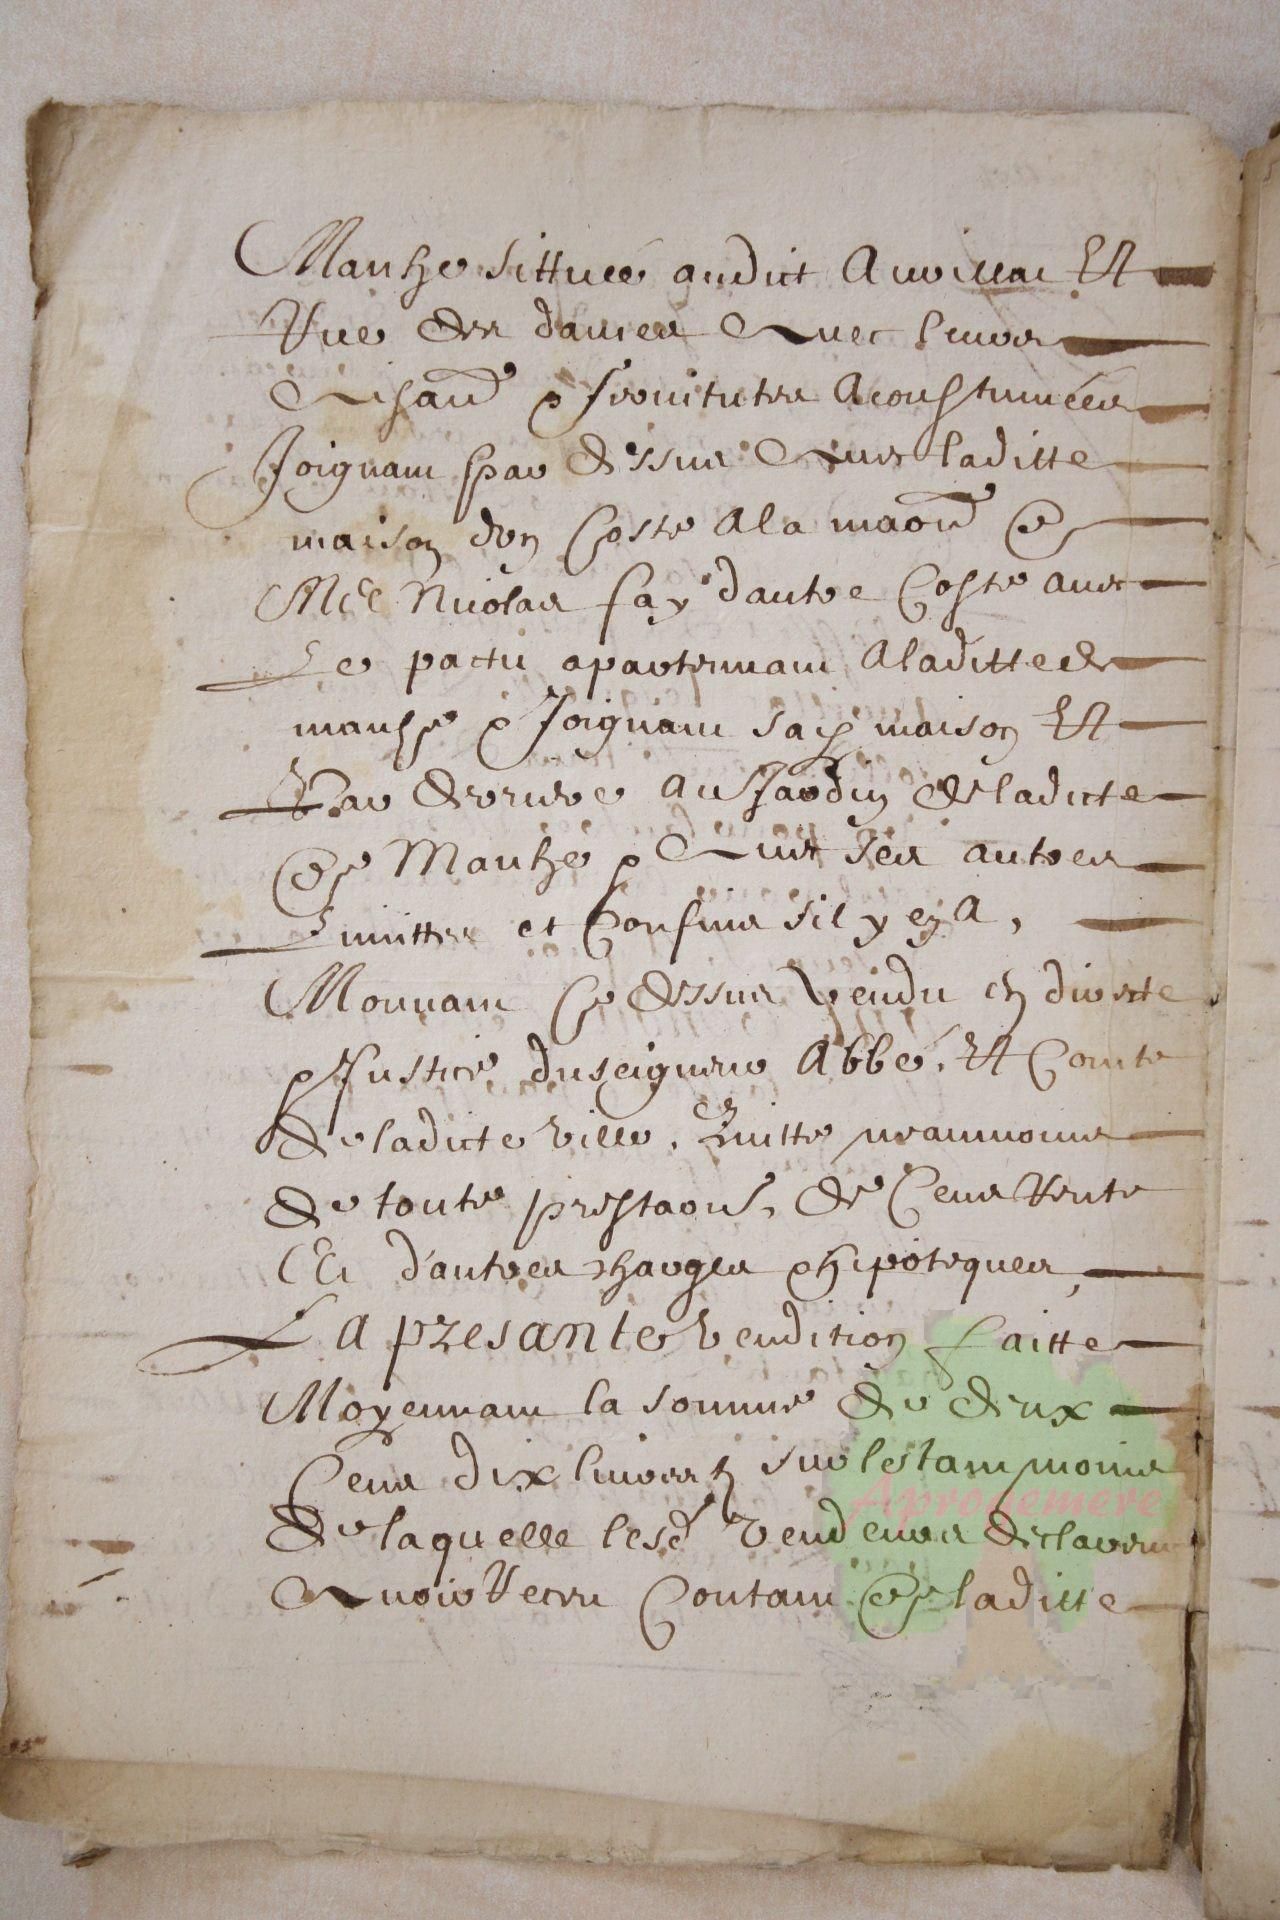 Manhe sittuée audict Aurillac Et
Rue des dames Avec leurs
Aisances & servitutes acoustumées
Joignant par dessus Avec laditte
maison d'un Coste a la maon de
Me Nicolas fay d'autre Coste avec
Le pactu apartennant a laditte de
manhe & Joignant sad maison Et
Par derriere au Jardin de ladicte
de Manhe & Avec ses autres
Limittes et Confins sil y en A,
Mouvant Ce dessus vendu en directe
& Justice du seigneur Abbé, Et Comte
de ladicte ville, Quitte neanmoins
de toute prestaons, de Cens Rente
Et d'autres charges & hipoteques,
La presante vendition faitte
Moyennant la somme de deux
Cens dix livres sur lestant moins
de laquelle lesd vendeurs declarent
Avoir Receu Contant de laditte
Aprogemere